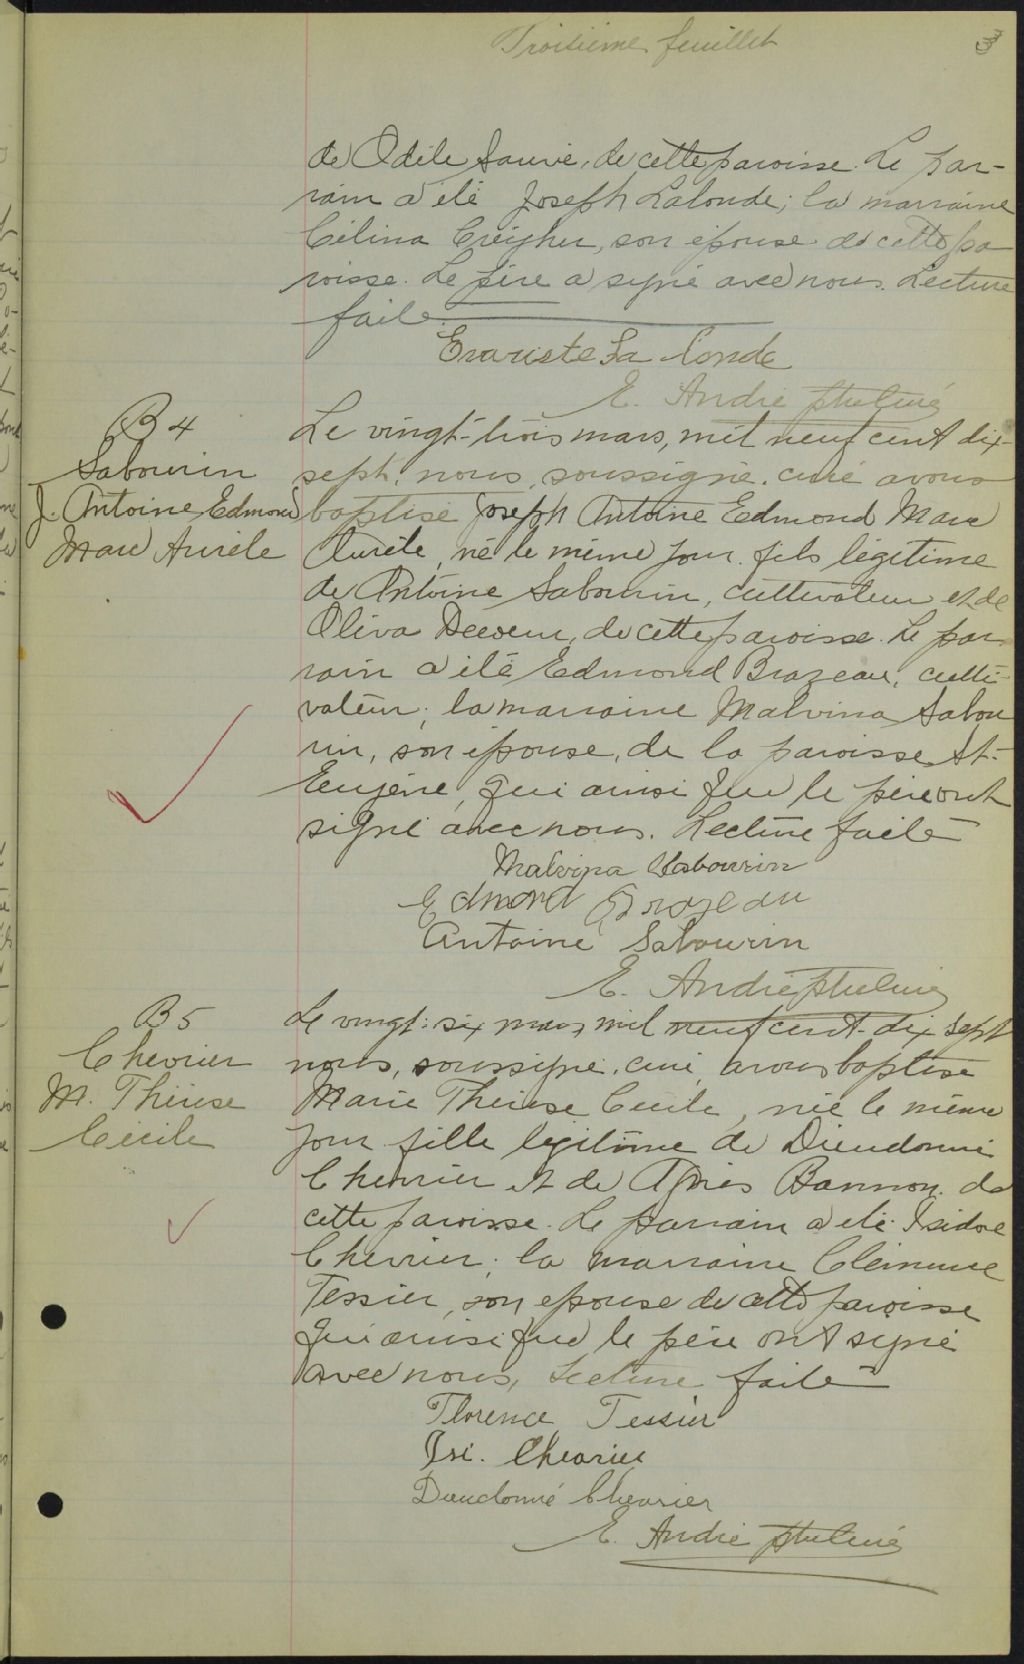 Troisième feuillet 3
de Odile Sauvé, de cette paroisse. Le par-
rain a été Joseph Lalonde; la marraine
Célina Creigher, son épouse de cette pa
roisse. Le père a signé avec nous. Lecture
faite.
Evariste La Londe
E. André ptre curé
B 4
Sabourin
J. Antoine Edmond
Marc Aurèle
Le vingt-trois mars, mil neuf cent dix-
sept, nous, soussigné, curé avons
baptisé Joseph Antoine Edmond Marc
Aurèle, né le même jour, fils légitime
de Antoine Sabourin, cultivateur et de
Oliva, de cette paroisse. Le par
rain a été Edmond Brazeau, culti-
vateur; la marraine Malvina Sabou
rin, son épouse, de la paroisse St-
Eugène, qui ainsi que le père ont
signé avec nous. Lecture faite
Malvina Sabourin
Edmond Brazeau
Antoine Sabourin
E. André ptre curé
B 5
Chevrier
M. Thérèse
Cécile
Le vingt-six mars mil neuf cent-dix sept
nous, soussigné, curé, avons baptisé
Marie Thérèse Cécile, née le même
jour fille légitime de Dieudonné
Chevrier et de Agnès Bannon de
cette paroisse. Le parrain a été Isidore
Chevrier; la marraine Clémence
Tessier, son épouse de cette paroisse
qui ainsi que le père ont signé
avec nous, Lecture faite
Florence Tessier
Isi. Chevrier
Dieudonné Chevrier
E. André ptre curé